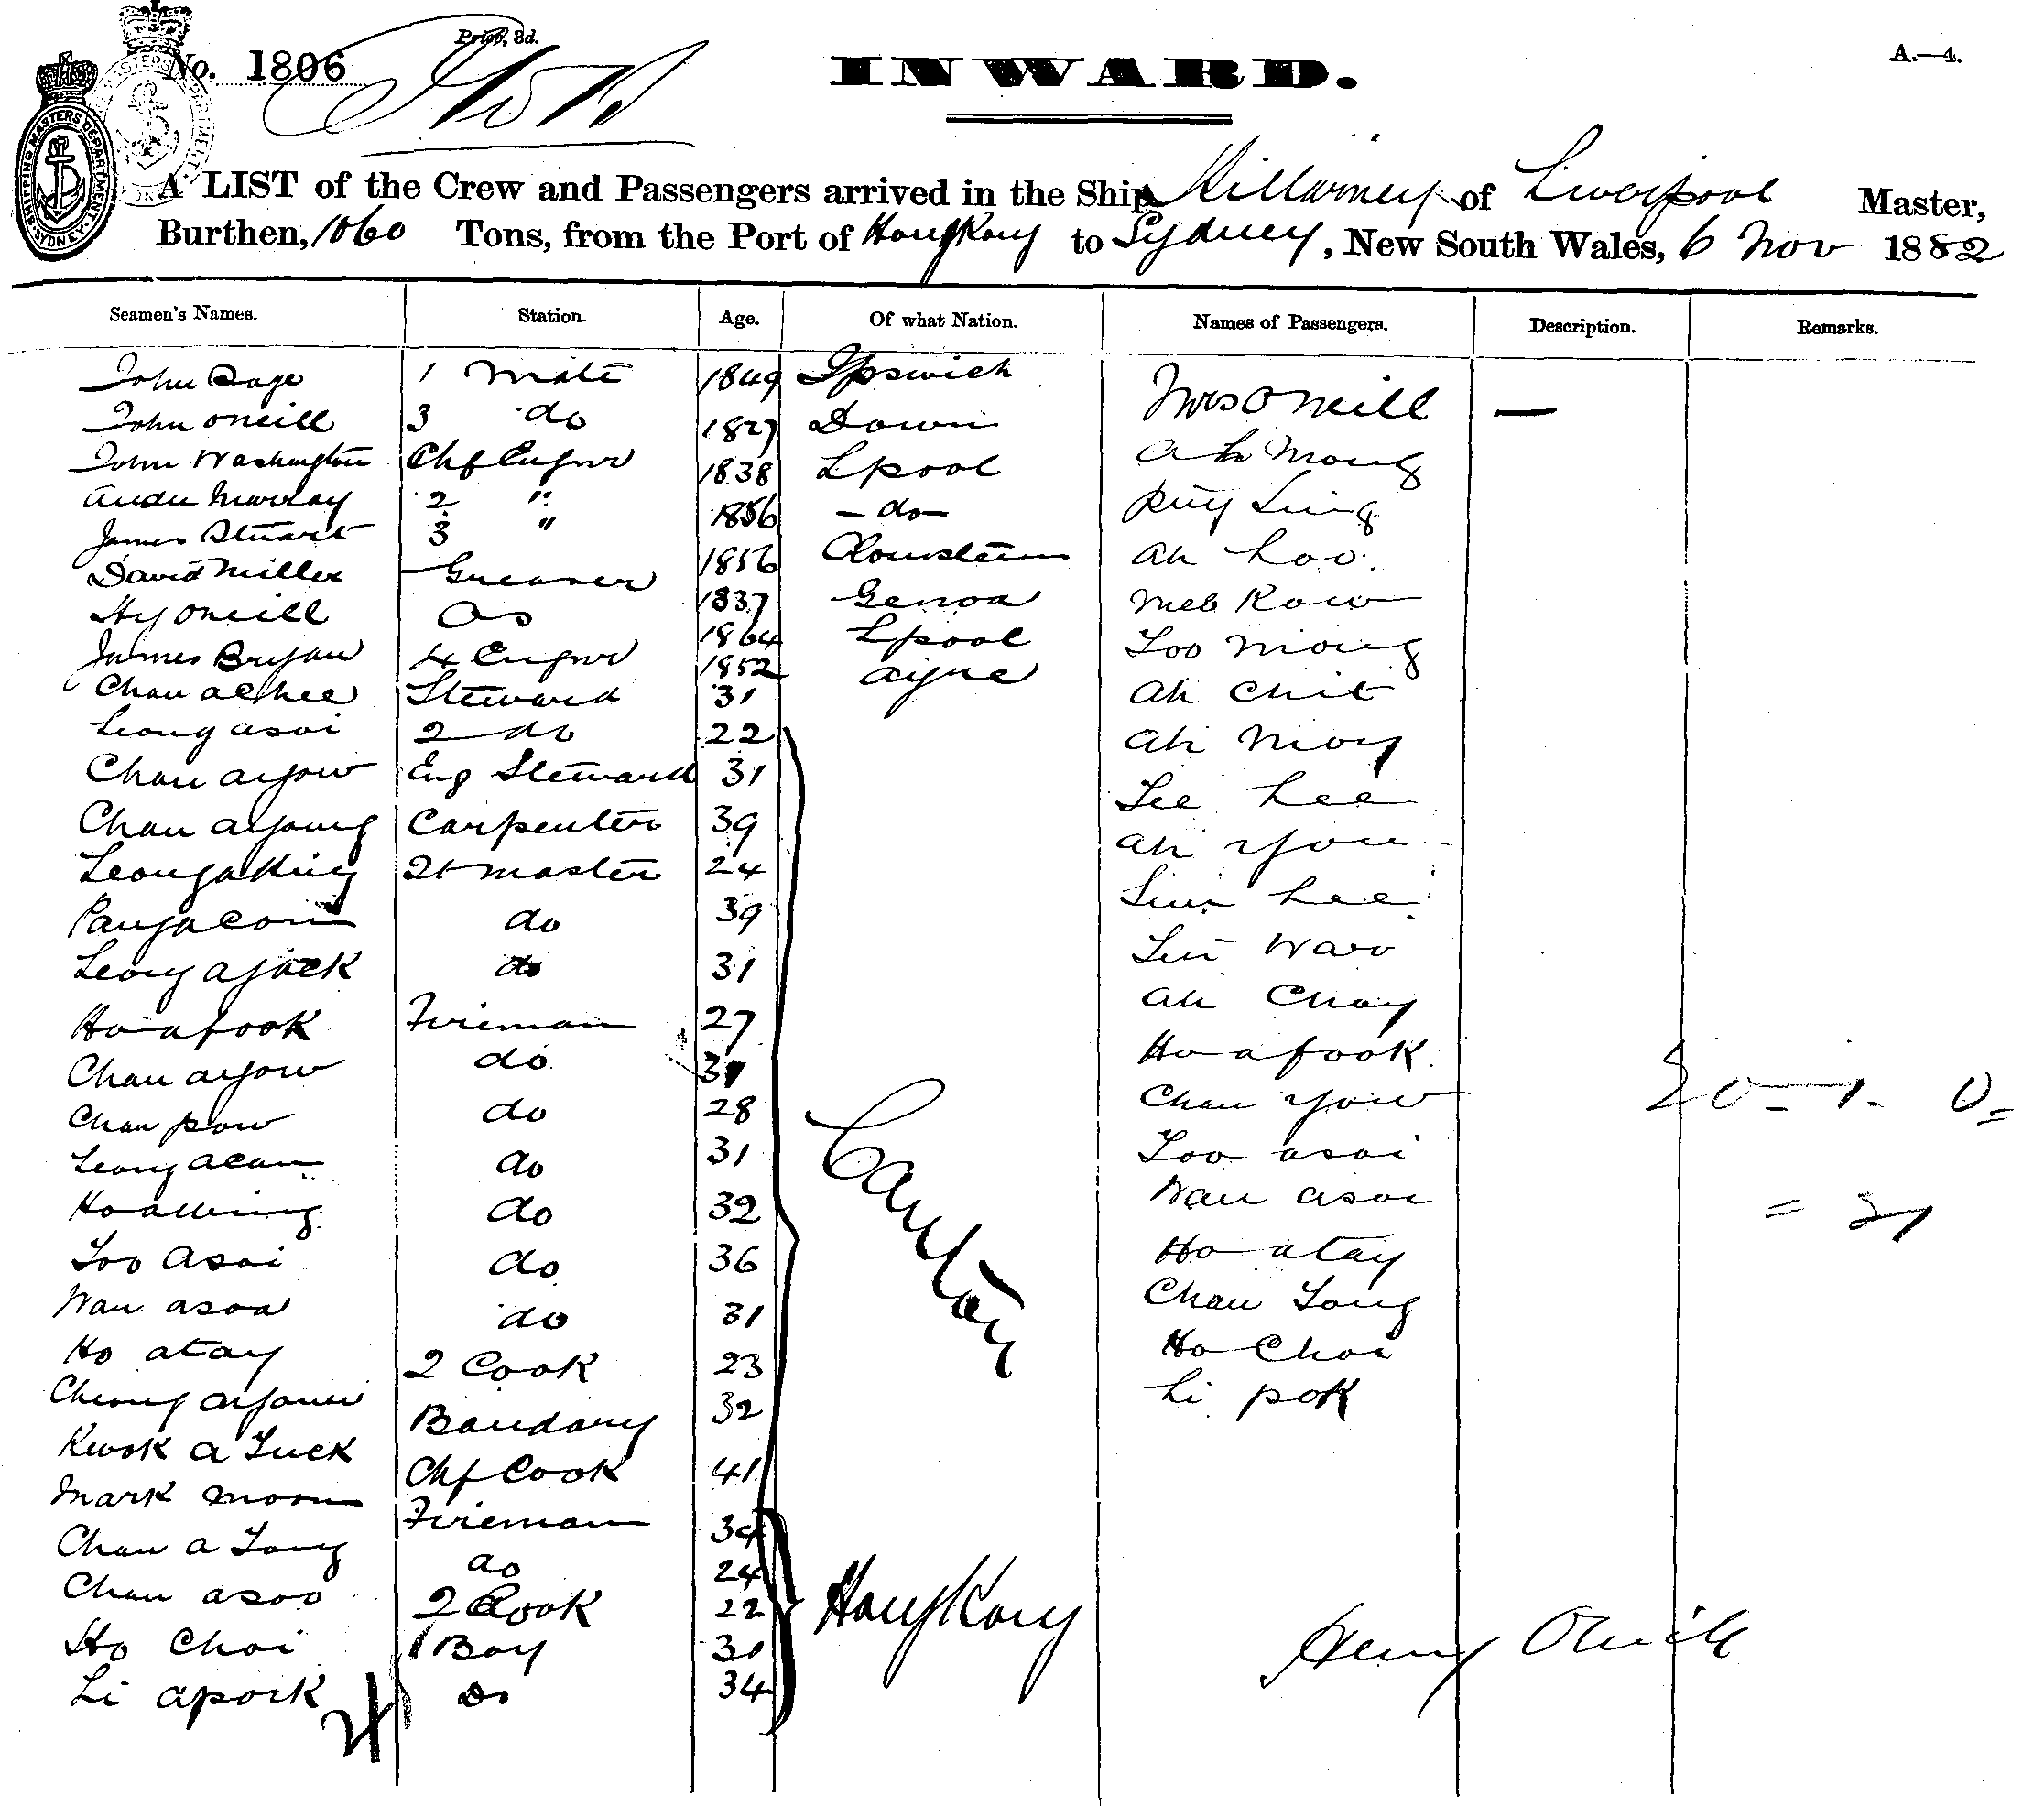 Price, 3d.
No. 1806
INWARD.
A.—4.
SHIPPING MASTERS DEPARTMENT SYDNEY
A LIST of the Crew and Passengers arrived in the Ship Killarney of Liverpool Master,
Burthen, 1060 Tons, from the Port of HongKong to Sydney, New South Wales, 6 Nov 1882
Seamen's Names. Station. Age. Of what Nation. Names of Passengers. Description. Remarks.
John Page 1 Mate 1849 Ipswich Mrs O Neill —
John ONeill 3 do 1827 Down Ah Moung
John Washington Chf Engnr 1838 Lpool Puy Ling
Andw Murray 2 " 1856 - do - Ah Loo
James Stuart 3 " 1856 Row
David Miller Greaser 1837 Genoa Loo Moung
Hy ONeill AS 1864 Lpool Ah Chit
James Bryan 4 Engnr 1852 Ayre Ah Moy
Chau Achee Steward 31 Lee Lee
Leong Asoi 2 do 22 Ah You
Chau Ayow Eng Steward 31 Sun Lee
Chau Ayoung Carpenter 39
Leong aKing Qt Master 24 Ah Choy
do 39 Ho afook
Leong ajack do 31 Chau Yow
Ho afook Fireman 27 Loo asoi
Chau ayow do 31 Wau asoi
Chau pow do 28 Ho atay
Leong acan do 31 Chau Tong
Ho do 32 Ho Choi
Loo Asoi do 36 Li pok
Wau asoa do 31
Ho atay 2 Cook 23
Cheong Bandary 32
Kwok a Tuck Chf Cook 41
Mark Moon Fireman 34
Chau a Tong do 24
Chau asoo 2 Cook 22
Ho Choi 1 Boy 31
Li apork Do 34
Canton
HongKong
20 - 1 - 0 =
= 21
Henry ONeill